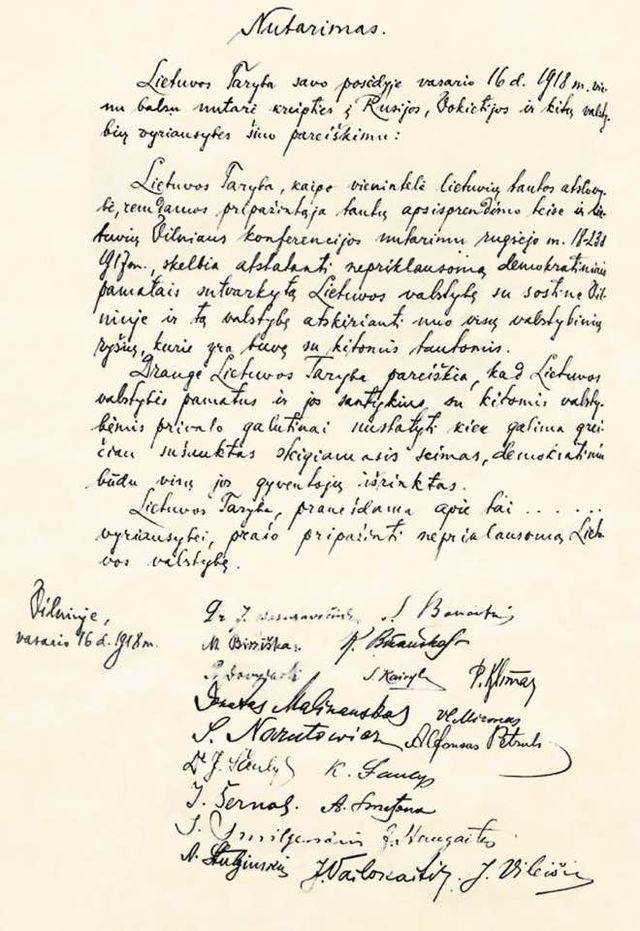 Nutarimas.
Lietuvos Taryba savo posėdyje vasario 16 d. 1918 m. vie-
nu balsu nutarė kreipties į Rusijos, Vokietijos ir kitų valsty-
bių vyriausybes šiuo pareiškimu:
Lietuvos Taryba, kaipo vienintelė lietuvių tautos atstovy-
bė, remdamos pripažintąja tautų apsisprendimo teise ir lie-
tuvių Vilniaus konferencijos nutarimu rugsėjo m. 18-23 d
1917 m., skelbia atstatanti nepriklausomą demokratiniais
pamatais sutvarkytą Lietuvos valstybę su sostine Vil-
niuje ir tą valstybę atskirianti nuo visų valstybinių
ryšių, kurie yra buvę su kitomis tautomis.
Drauge Lietuvos Taryba pareiškia, kad Lietuvos
valstybės pamatus ir jos santykius su kitomis valsty-
bėmis privalo galutinai nustatyti kiek galima grei-
čiau sušauktas steigiamasis seimas, demokratiniu
būdu visų jos gyventojų išrinktas.
Lietuvos Taryba, pranešdama apie tai . . . . . .
vyriausybei, prašo pripažinti nepriklausomą Lietu-
vos valstybę.
Vilniuje,
vasario 16 d. 1918 m.
Dr J. J. Banaitis
M. Biržiška K. Bizauskas
S. Kairys P. Klimas
Donatas Malinauskas Vl. Mironas
S. Narutowicz Alfonsas Petrulis
Dr J. Šaulys K. Šaulys
J. Šernas A. Smetona
J. Smilgevičius J. Staugaitis
A. Stulginskis J. Vailokaitis J. Vileišis